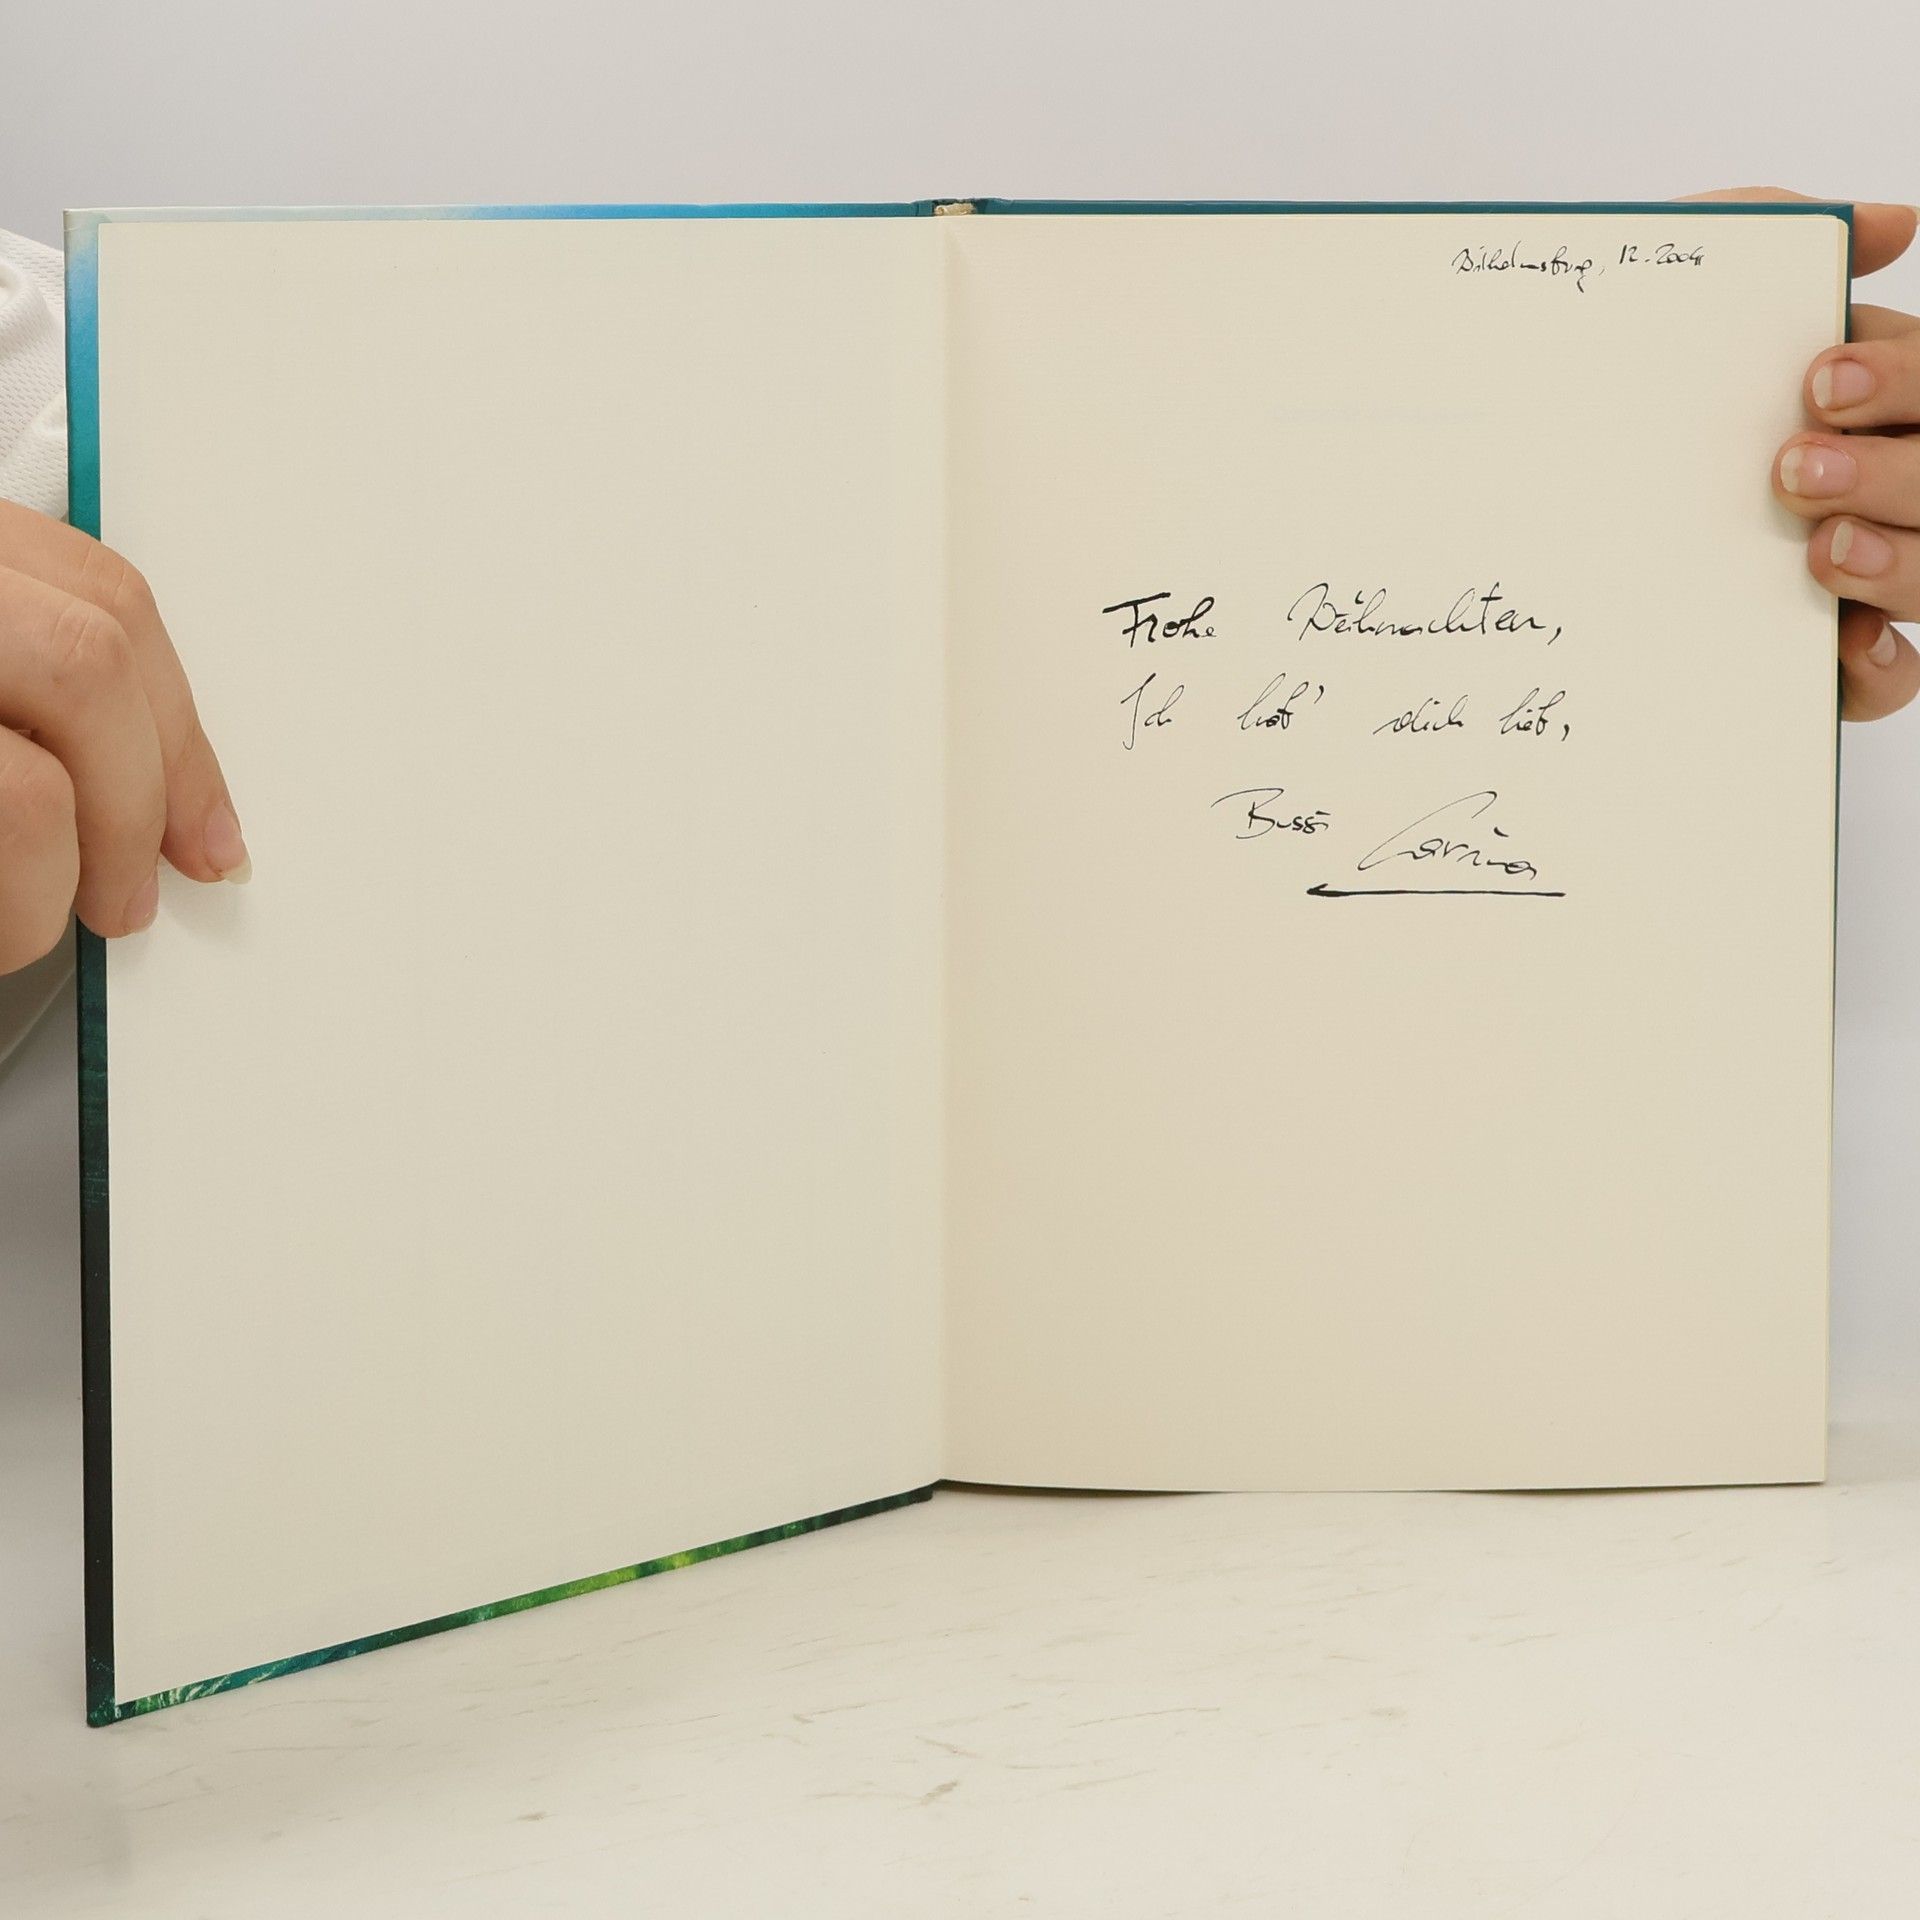 Wilhelmsburg, 12.2004
Frohe Weihnachten,
Ich hab' dich lieb,
Bussi Carina